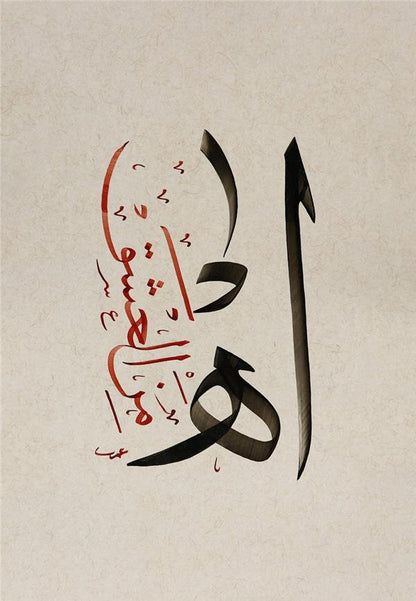 آه
مِنَ العشق